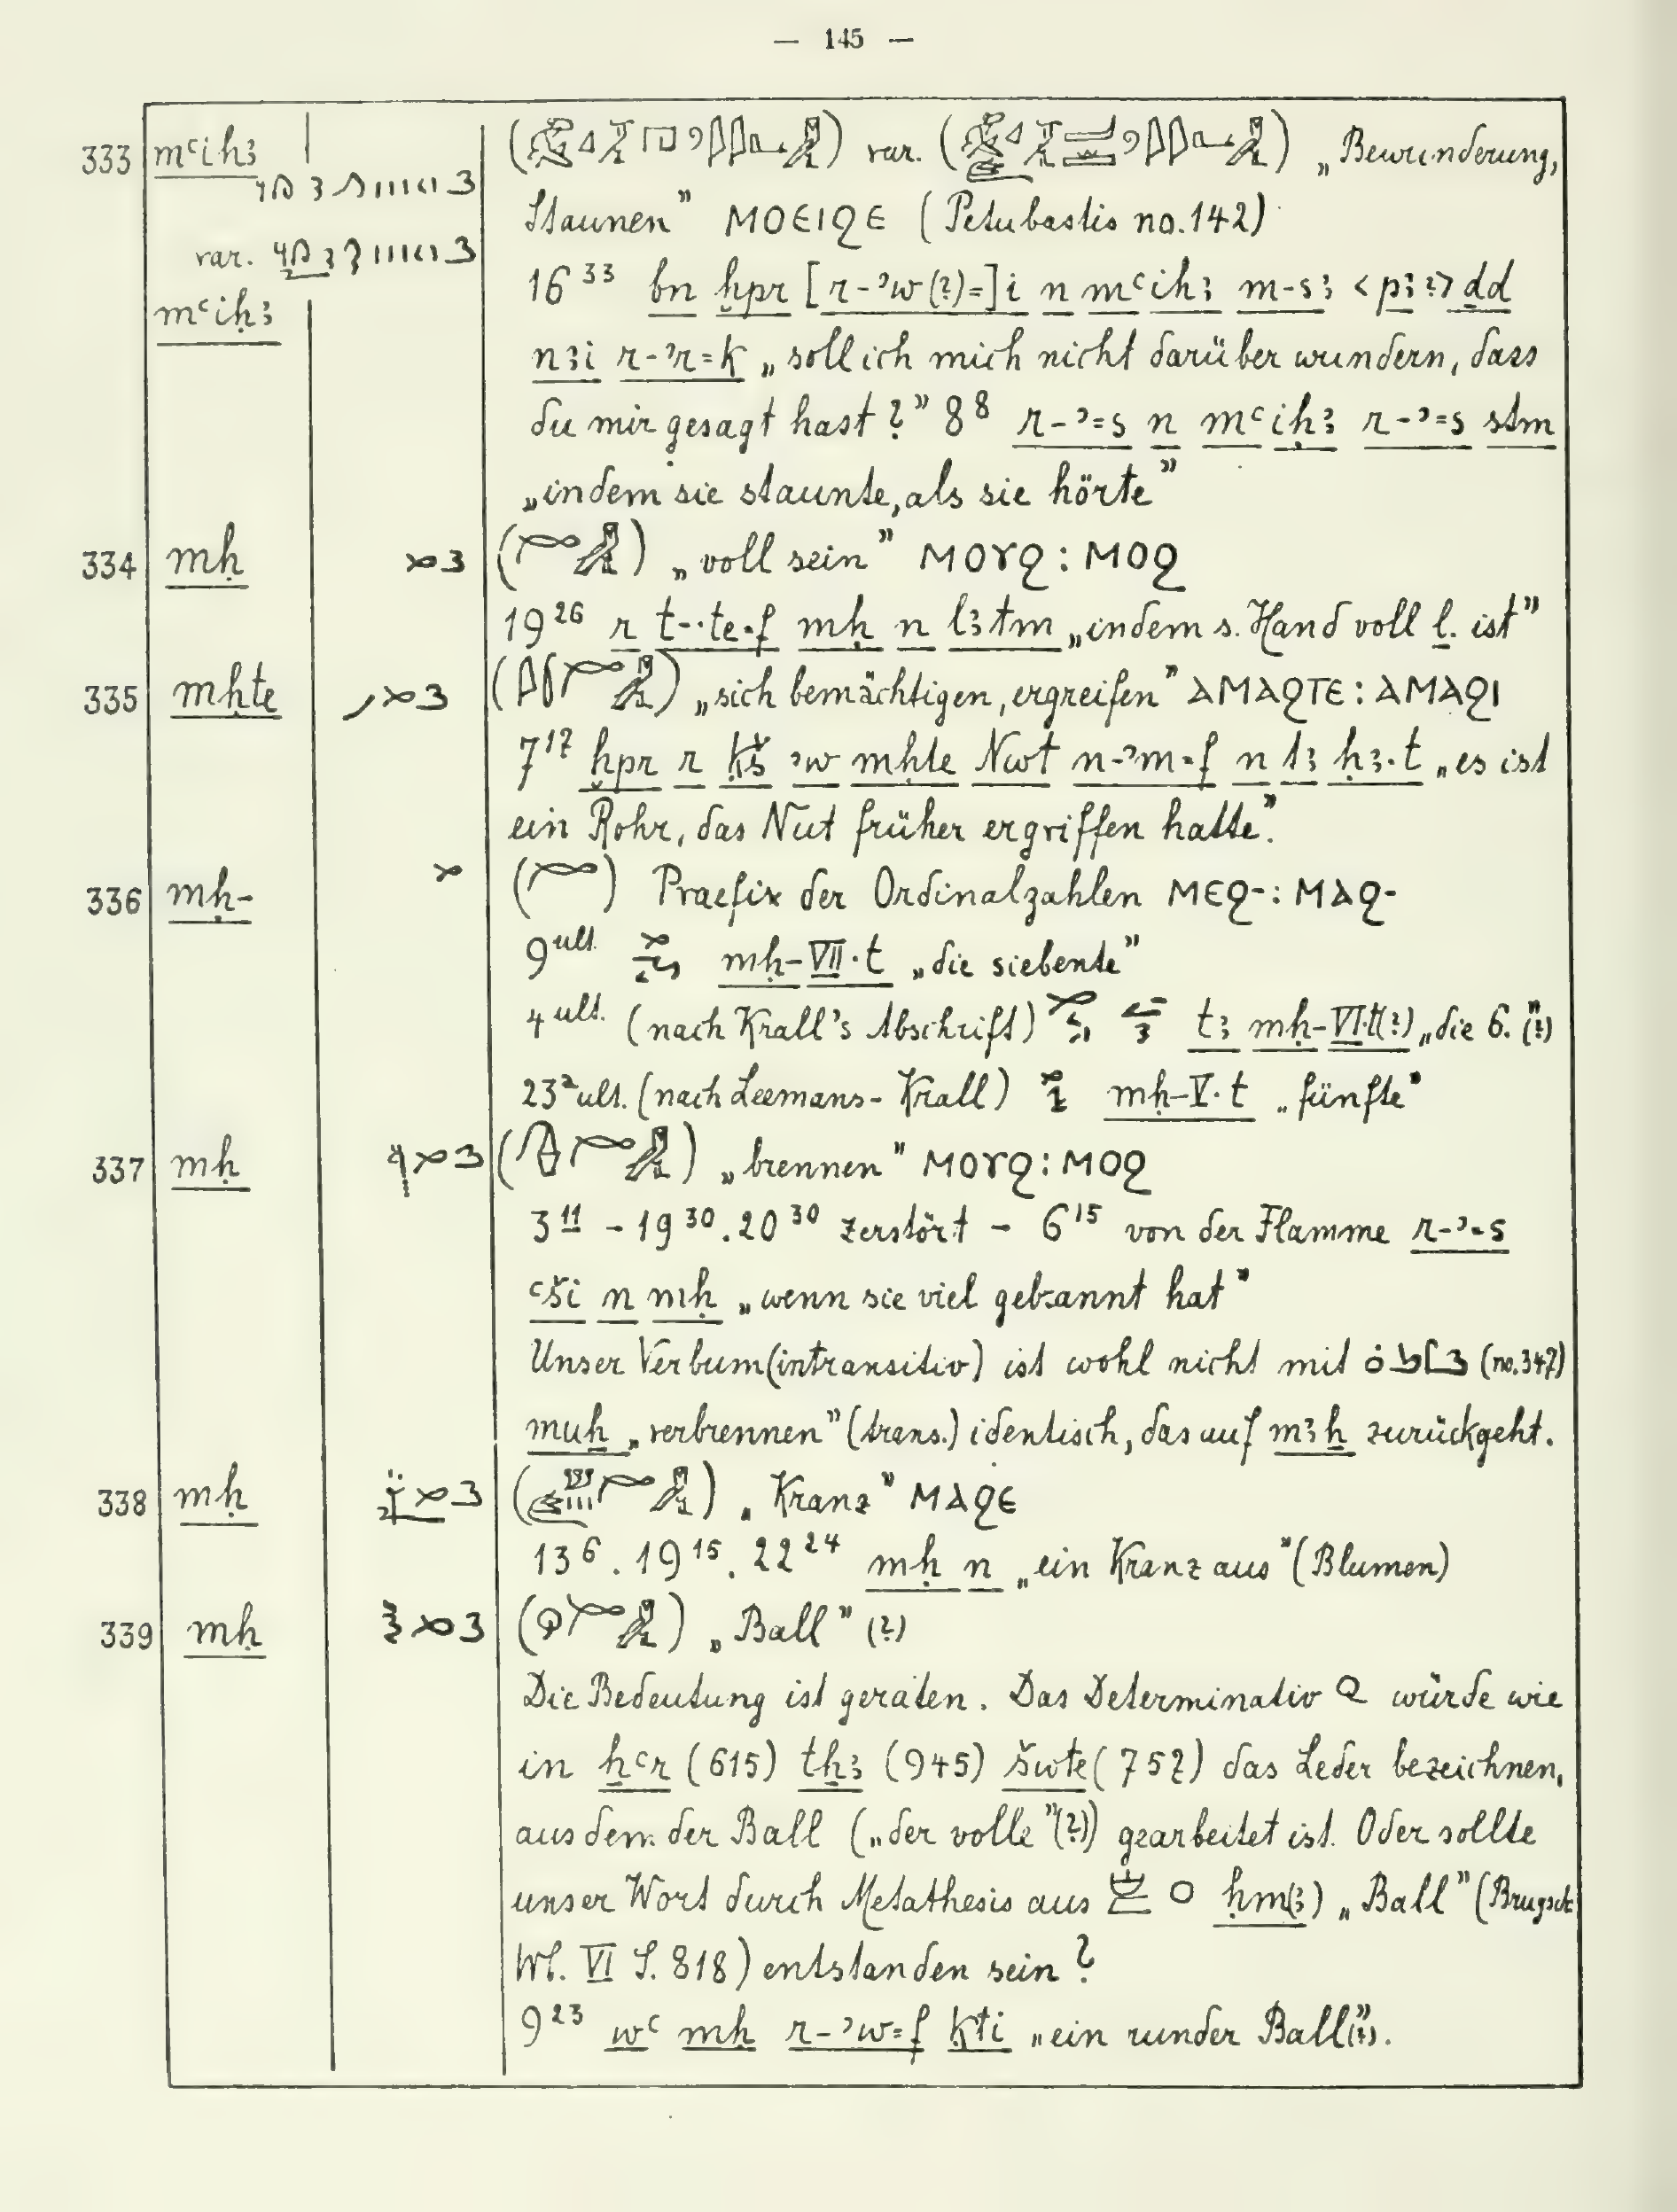 — 145 —
333 mꜥihꜣ var. „Bewunderung,
Staunen” ⲙⲟⲉⲓϩⲉ (Petubastis no. 142)
var.
mꜥiḥꜣ 16³³ bn ḫpr [r-ʾw(?)=]i n mꜥihꜣ m-sꜣ <pꜣ?> ḏd
nꜣi r-ʾr=k „soll ich mich nicht darüber wundern, dass
du mir gesagt hast?” 8⁸ r-ʾ=s n mꜥiḥꜣ r-ʾ=s stm
„indem sie staunte, als sie hörte”
334 mḥ „voll sein” ⲙⲟⲩϩ : ⲙⲟϩ
19²⁶ r t-·te·f mḥ n lꜣtm „indem s. Hand voll l. ist”
335 mḥte „sich bemächtigen, ergreifen” ⲁⲙⲁϩⲧⲉ : ⲁⲙⲁϩⲓ
7¹⁷ ḫpr r ḳš ʾw mḥte Nwt n-ʾm=f n tꜣ ḥꜣ·t „es ist
ein Rohr, das Nut früher ergriffen hatte”.
336 mḥ- Praefix der Ordinalzahlen ⲙⲉϩ- : ⲙⲁϩ-
9 ult. mḥ-VII·t „die siebente”
4 ult. (nach Krall's Abschrift) tꜣ mḥ-VI·t(?) „die 6.”(?)
23² ult. (nach Leemans-Krall) mḥ-V·t „fünfte”
337 mḥ „brennen” ⲙⲟⲩϩ : ⲙⲟϩ
3¹¹ - 19³⁰. 20³⁰ zerstört - 6¹⁵ von der Flamme r-ʾ=s
ꜥši n mḥ „wenn sie viel gebrannt hat”
Unser Verbum (intransitiv) ist wohl nicht mit (no. 347)
muẖ „verbrennen” (trans.) identisch, das auf mꜣẖ zurückgeht.
338 mḥ „Kranz” ⲙⲁϩⲉ
13⁶. 19¹⁵. 22²⁴ mḥ n „ein Kranz aus” (Blumen)
339 mḥ „Ball” (?)
Die Bedeutung ist geraten. Das Determinativ würde wie
in ẖꜥr (615) tḥꜣ (945) šwte (757) das Leder bezeichnen,
aus dem der Ball („der volle”(?)) gearbeitet ist. Oder sollte
unser Wort durch Metathesis aus ḥm(ꜣ) „Ball” (Brugsch
Wb. VI S. 818) entstanden sein?
9²³ wꜥ mḥ r-ʾw=f ḳti „ein runder Ball(?)”.